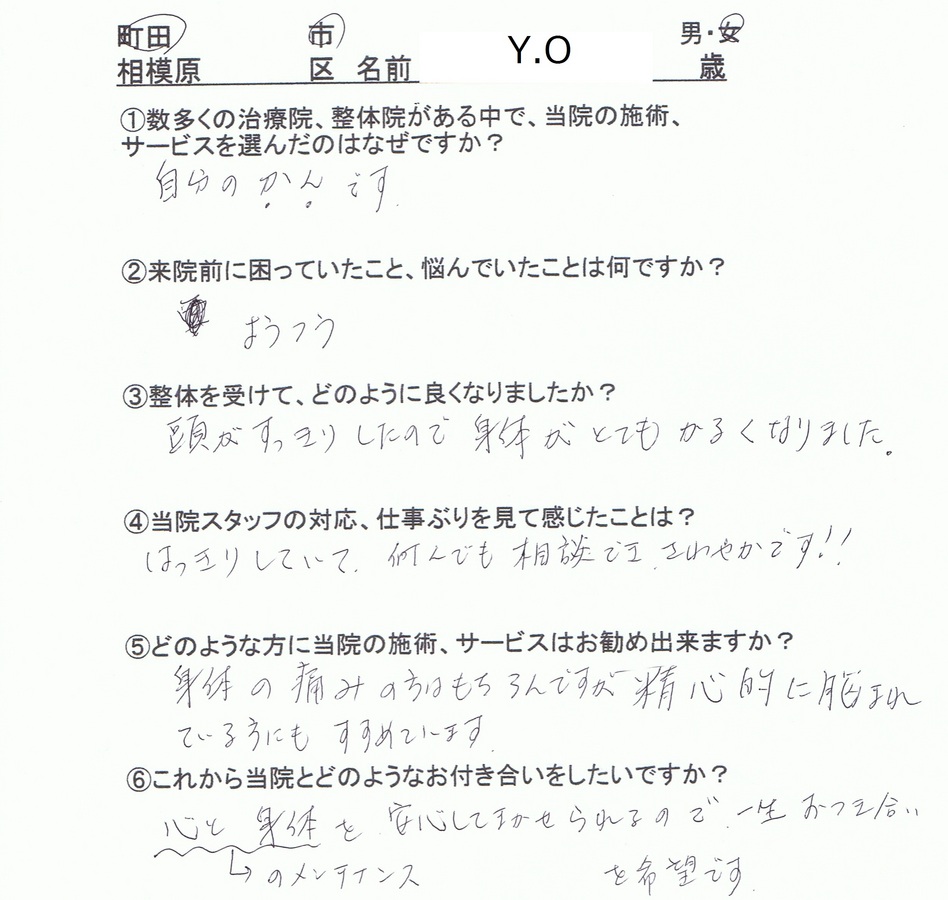 町田 市 男・女
相模原 区 名前 Y.O 歳
①数多くの治療院、整体院がある中で、当院の施術、
サービスを選んだのはなぜですか？
自分のかんです.
②来院前に困っていたこと、悩んでいたことは何ですか？
ようつう
③整体を受けて、どのように良くなりましたか？
頭がすっきりしたので身体がとてもかるくなりました。
④当院スタッフの対応、仕事ぶりを見て感じたことは？
はっきりしていて、何んでも相談でき、さわやかです!!
⑤どのような方に当院の施術、サービスはお勧め出来ますか？
身体の痛みの方はもちろんですが精心的に悩まれ
ている方にもすすめています.
⑥これから当院とどのようなお付き合いをしたいですか？
心と身体を安心してまかせられるので、一生おつき合い
のメンテナンス を希望です.